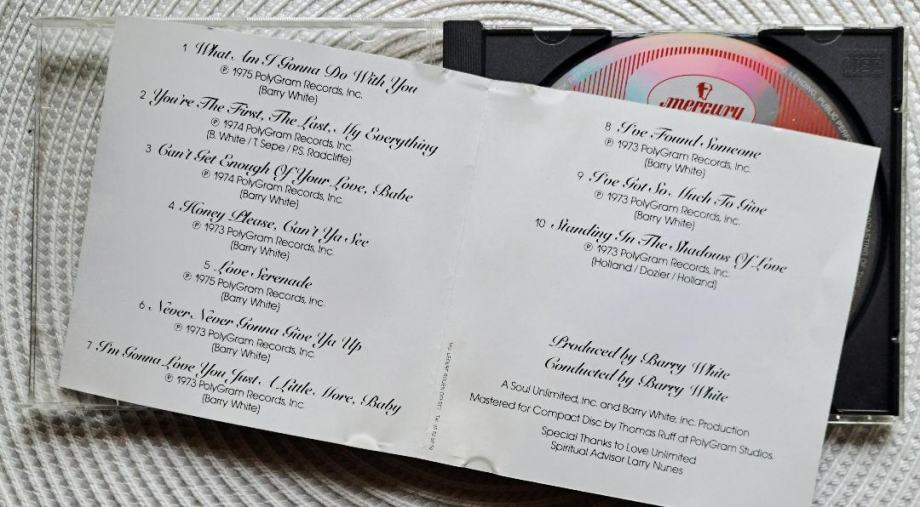 1 What Am I Gonna Do With You
℗ 1975 PolyGram Records, Inc.
(Barry White)
2 You're The First, The Last, My Everything
℗ 1974 PolyGram Records, Inc.
(B. White / T. Sepe / P.S. Radcliffe)
3 Can't Get Enough Of Your Love, Babe
℗ 1974 PolyGram Records, Inc.
(Barry White)
4 Honey Please, Can't Ya See
℗ 1973 PolyGram Records, Inc.
(Barry White)
5 Love Serenade
℗ 1975 PolyGram Records, Inc.
(Barry White)
6 Never Never Gonna Give Ya Up
℗ 1973 PolyGram Records, Inc.
(Barry White)
7 I'm Gonna Love You Just A Little More, Baby
℗ 1973 PolyGram Records, Inc.
(Barry White)
8 I've Found Someone
℗ 1973 PolyGram Records, Inc.
(Barry White)
9 I've Got So Much To Give
℗ 1973 PolyGram Records, Inc.
(Barry White)
10 Standing In The Shadows Of Love
℗ 1973 PolyGram Records, Inc.
(Holland / Dozier / Holland)
Produced by Barry White
Conducted by Barry White
A Soul Unlimited, Inc. and Barry White, Inc. Production
Mastered for Compact Disc by Thomas Ruff at PolyGram Studios.
Special Thanks to Love Unlimited
Spiritual Advisor Larry Nunes
mercury
LENDING, PUBLIC